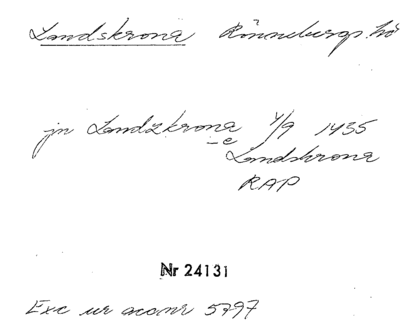 Landskrona Rönnebergs hd
jn Landzkrona 4/9 1435
-e
Landskrona
RAP
Nr 24131
Exc ur acc nr 5797